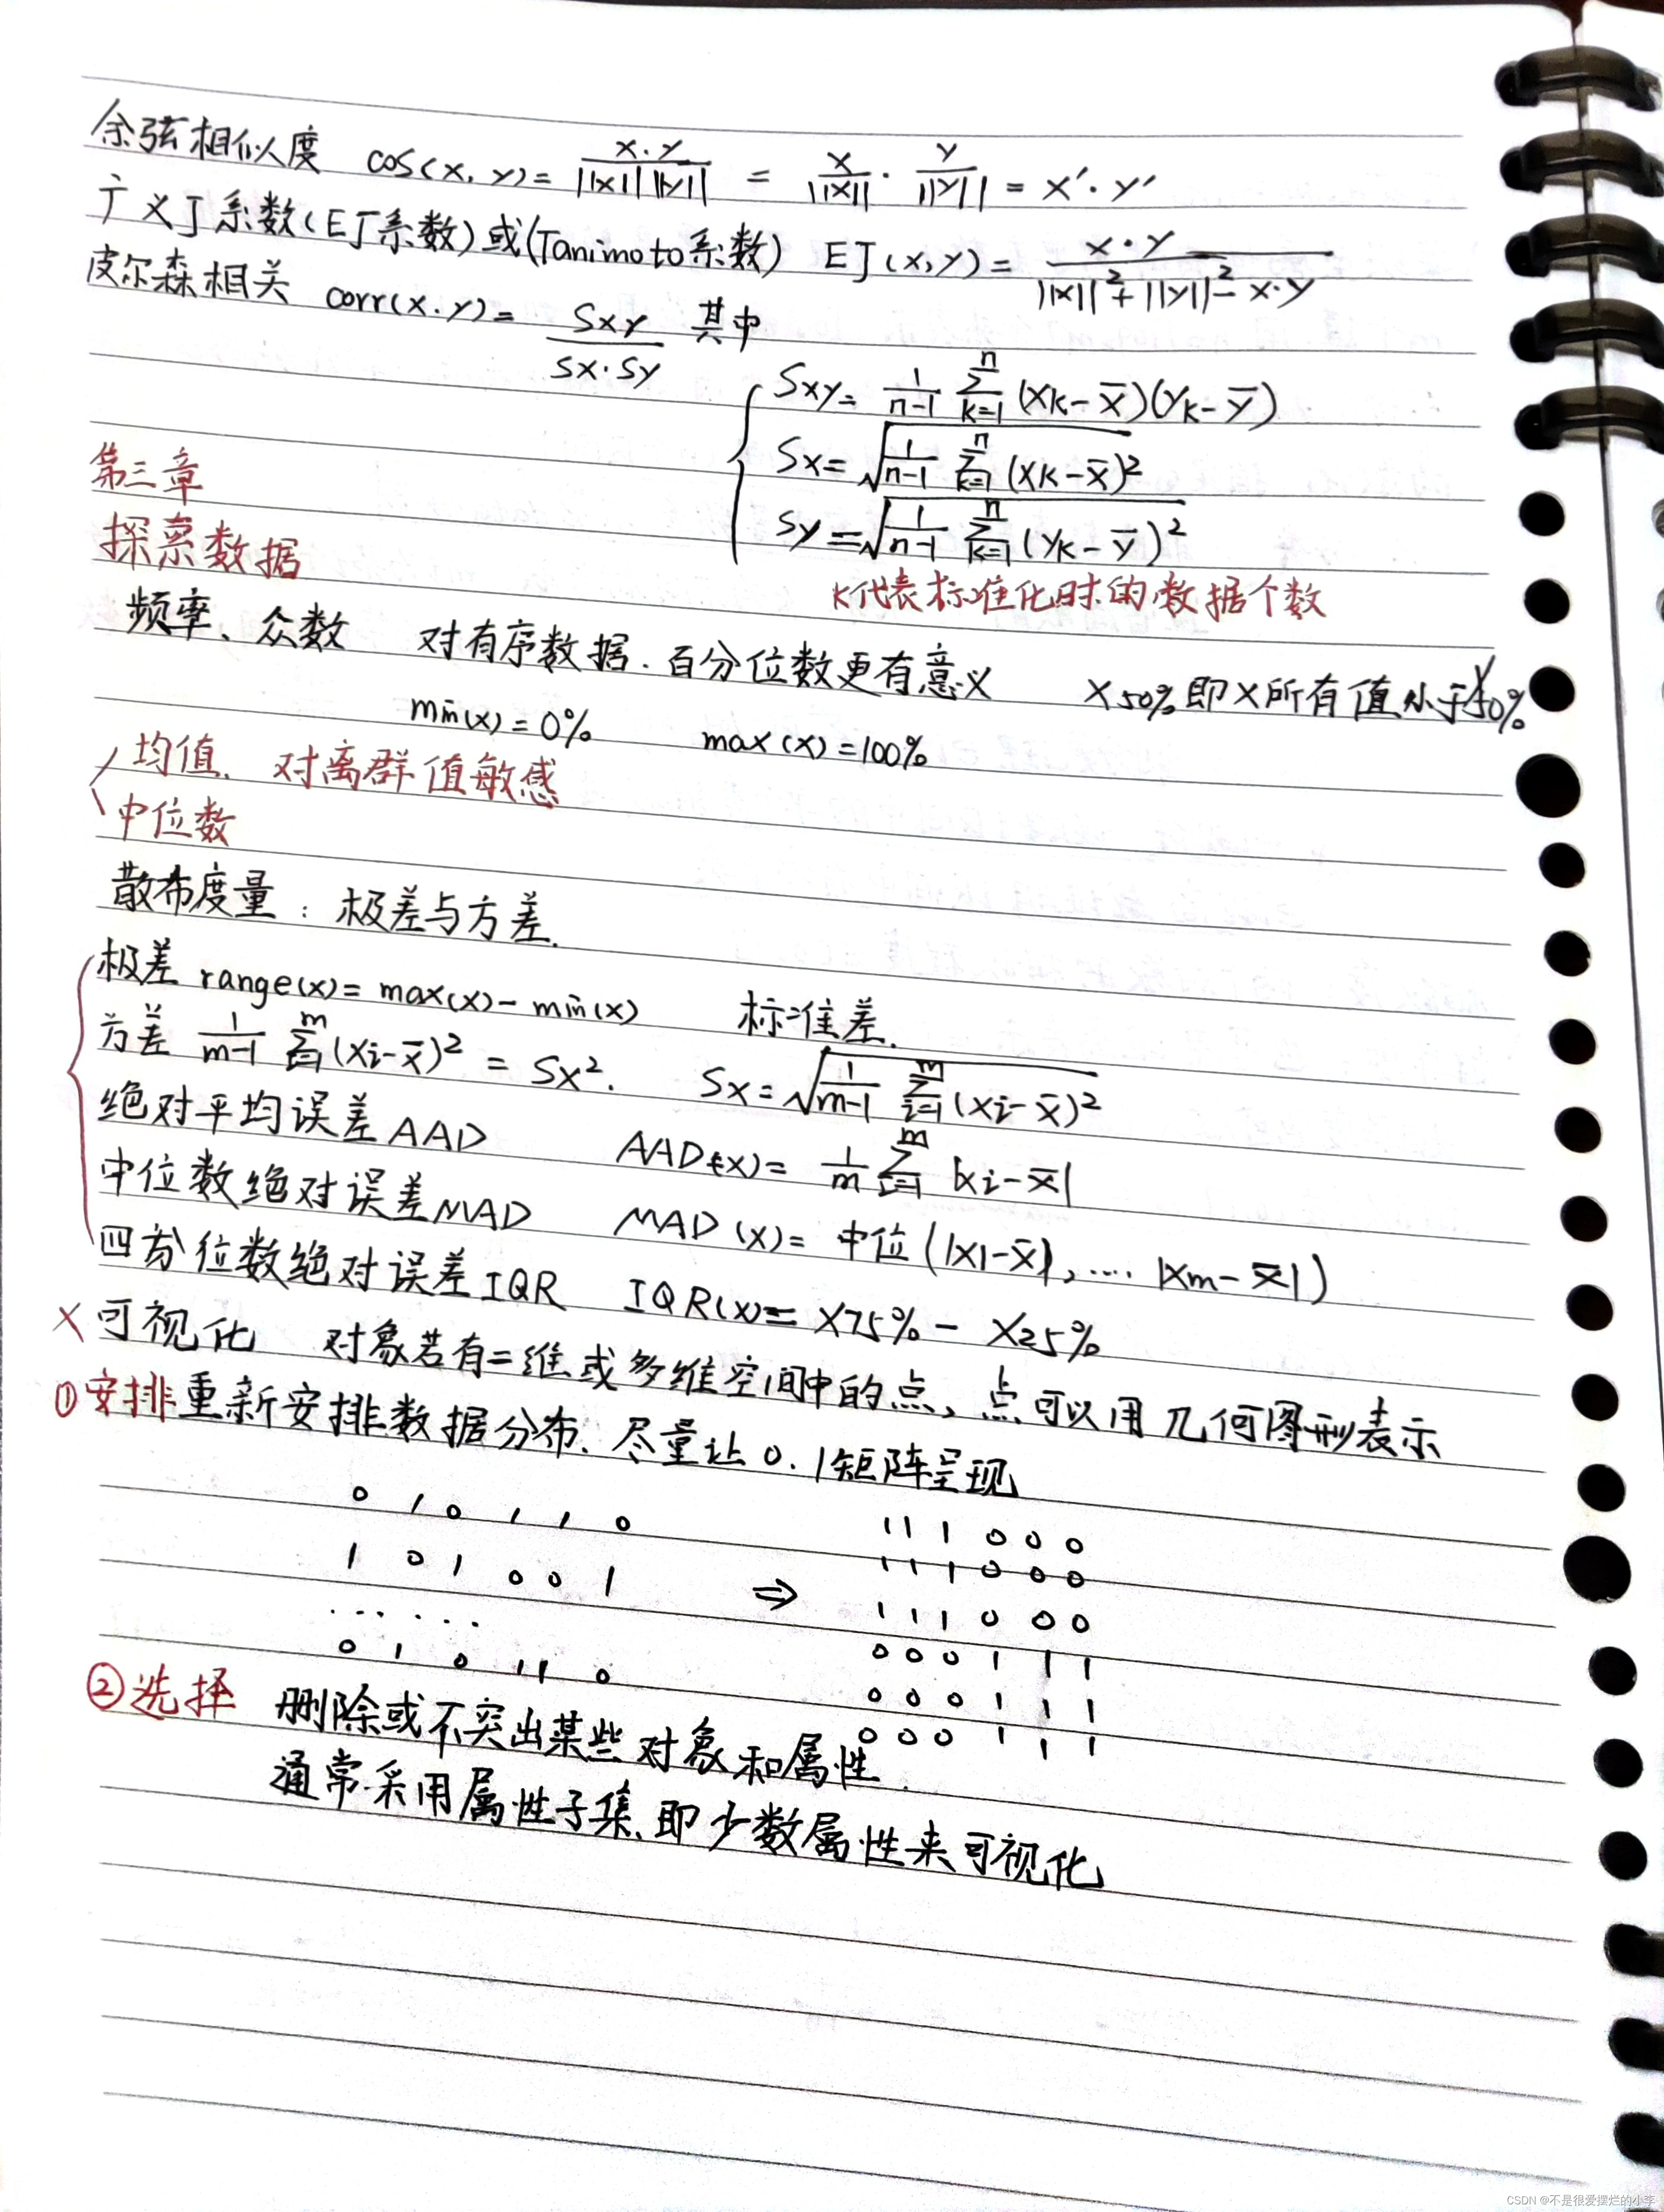 余弦相似度 cos(x, y) = x·y / ||x|| ||y|| = x/||x|| · y/||y|| = x'·y'
广义J系数(EJ系数)或(Tanimoto系数) EJ(x,y) = x·y / ||x||²+||y||²-x·y
皮尔森相关 corr(x.y) = Sxy / Sx·Sy 其中
Sxy = 1/n-1 ∑_{k=1}^{n} (xk-x̄)(yk-ȳ)
Sx = √(1/n-1 ∑_{k=1}^{n} (xk-x̄)²)
Sy = √(1/n-1 ∑_{k=1}^{n} (yk-ȳ)²)
第三章
探索数据
K代表标准化时的数据个数
频率、众数 对有序数据.百分位数更有意义 X50%即X所有值小于X50%
min(x)=0% max(x)=100%
均值. 对离群值敏感
中位数
散布度量: 极差与方差.
极差 range(x) = max(x) - min(x) 标准差.
方差 1/m-1 ∑_{i=1}^{m} (xi-x̄)² = Sx². Sx = √(1/m-1 ∑_{i=1}^{m} (xi-x̄)²)
绝对平均误差AAD AAD(x) = 1/m ∑_{i=1}^{m} |xi-x̄|
中位数绝对误差MAD MAD(x) = 中位(|x1-x̄|, .... |xm-x̄|)
四分位数绝对误差IQR IQR(x) = X75% - X25%
X可视化 对象若有二维或多维空间中的点, 点可以用几何图形表示
①安排重新安排数据分布. 尽量让0.1矩阵呈现
0 1 0 1 1 0 1 1 1 0 0 0
1 0 1 0 0 1 1 1 1 0 0 0
⇒
...... 1 1 1 0 0 0
0 1 0 1 1 0 0 0 0 1 1 1
0 0 0 1 1 1
0 0 0 1 1 1
②选择 删除或不突出某些对象和属性.
通常采用属性子集.即少数属性来可视化
CSDN @不是很爱摆烂的小李